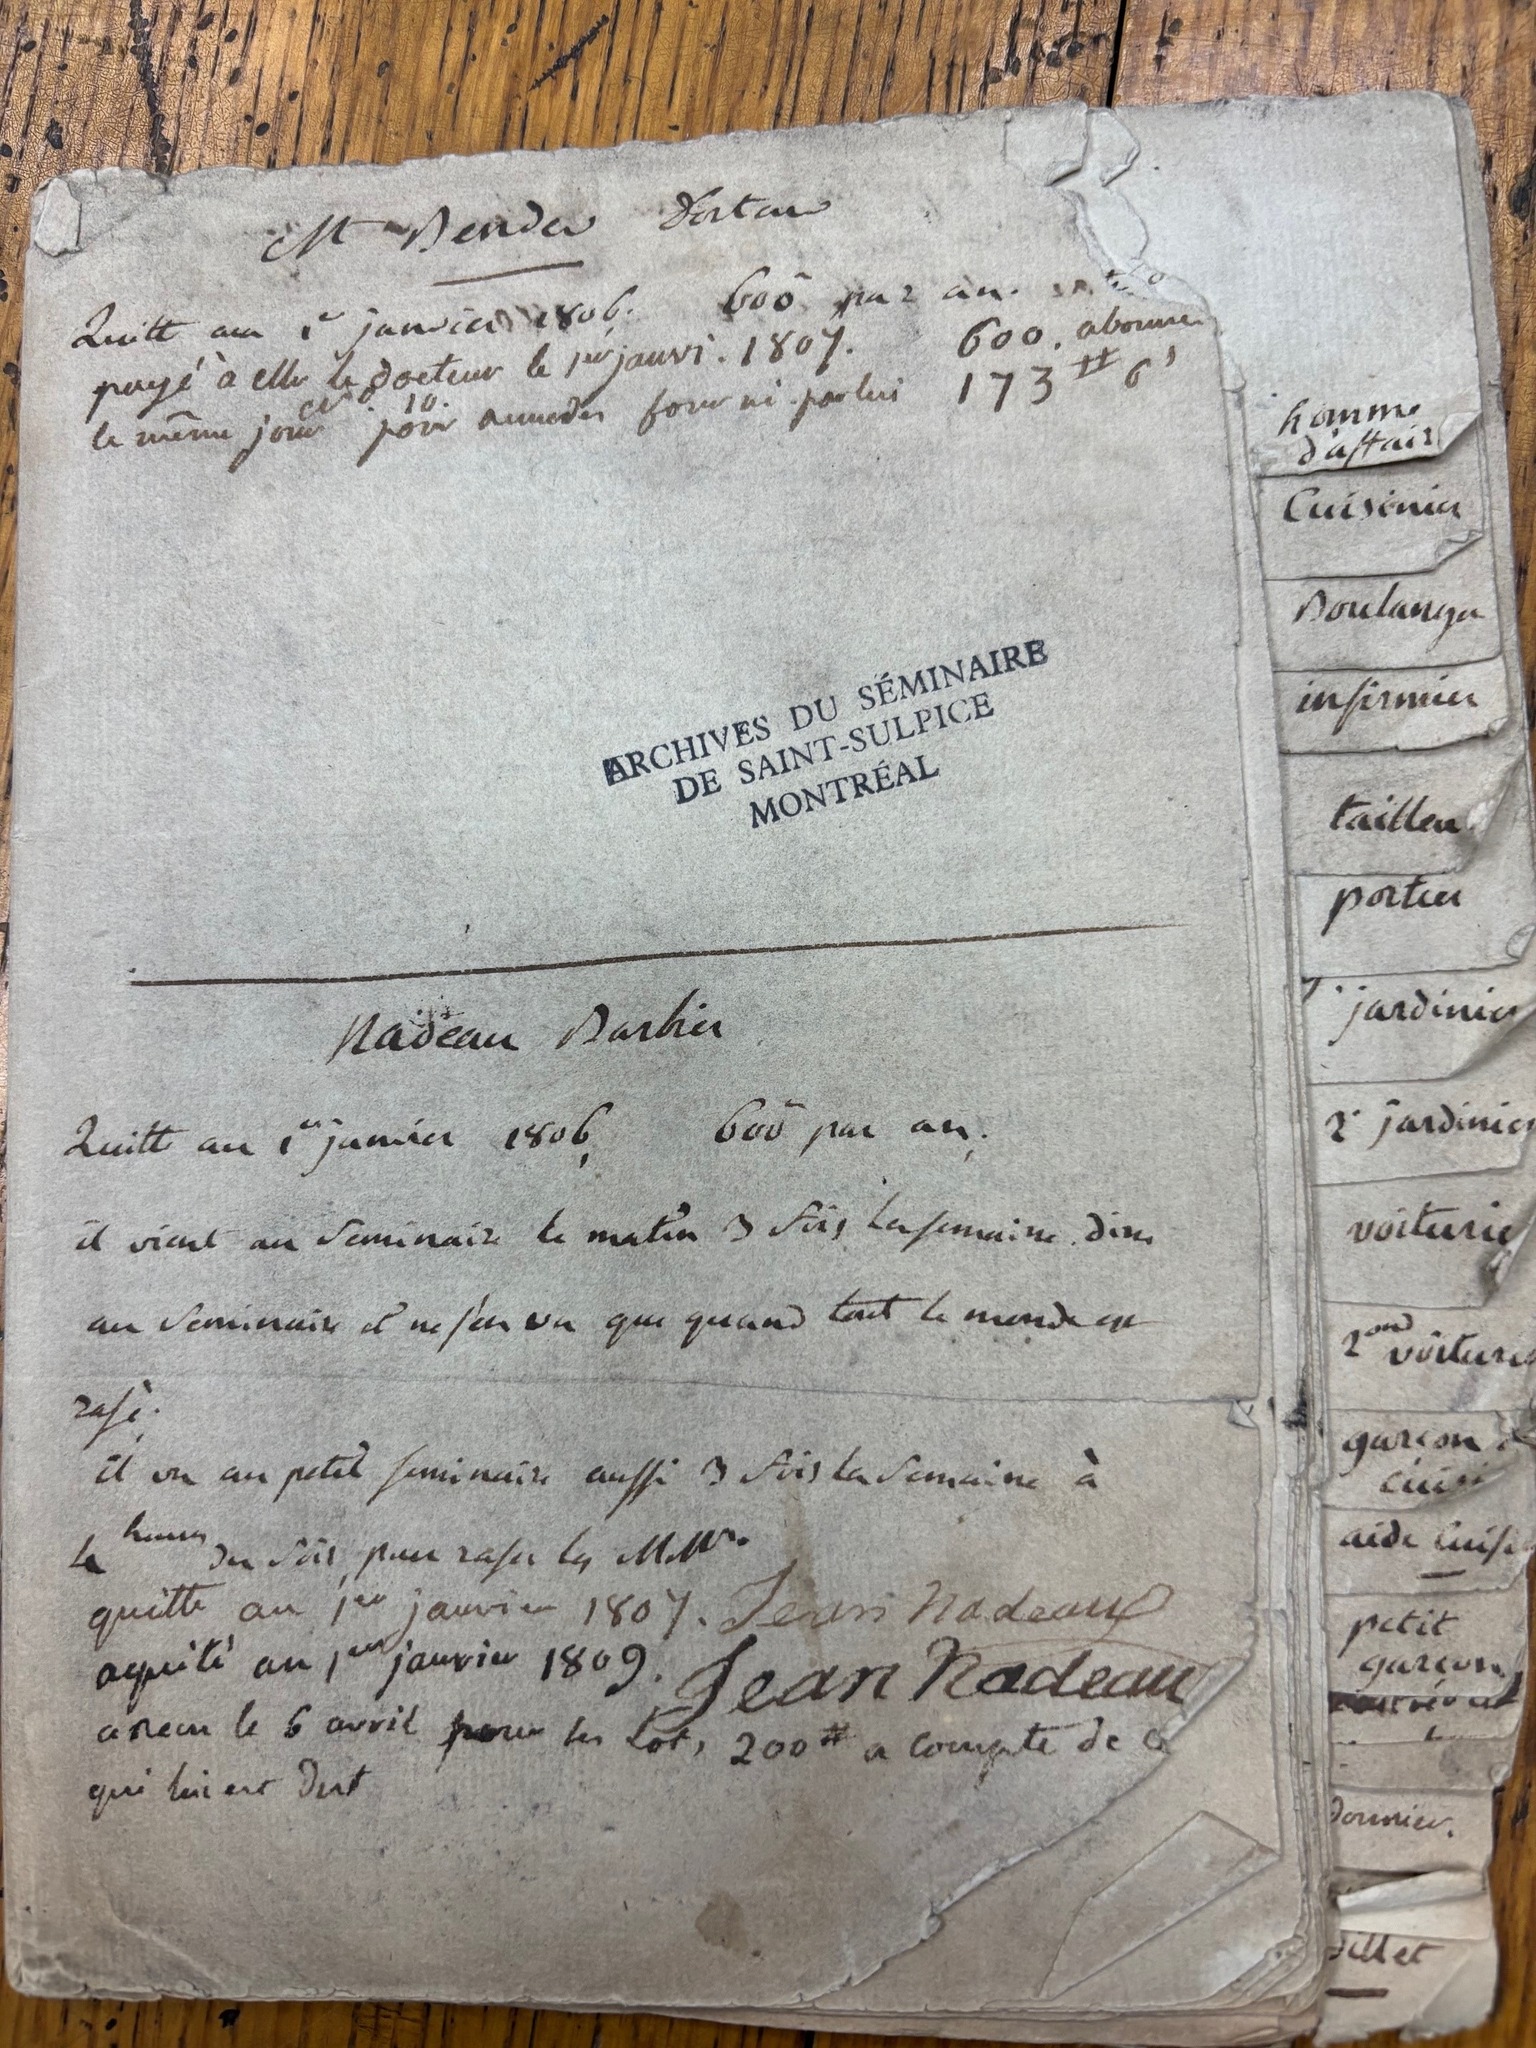 Mr Bender Docteur
Quitt au 1er janvier 1806. 600 par an.
payé à elle le docteur le 1er janvi. 1807. 600. abonne
le même jour pour fourni par lui 173 ₶ 6s
ARCHIVES DU SÉMINAIRE
DE SAINT-SULPICE
MONTRÉAL
Nadeau Barbier
Quitt au 1er janvier 1806, 600 par an.
il vient au Seminaire le matin 3 fois la semaine. dine
au Seminaire et ne s'en va que quand tout le monde est
rasé.
il va au petit seminaire aussi 3 fois la Semaine à
heures du soir pour raser les MMrs.
quitte au 1er janvier 1807. Jean Nadeau
aquité au 1er janvier 1809. Jean Nadeau
a recu le 6 avril pour les 200 ₶ a compte de ce
qui lui est dut
homme
d'affair
Cuisinier
Boulanger
infirmier
tailleur
portier
1. jardinier
2e jardinier
voiturie
2ond voiture
garcon
cuisi
aide Cuisi
petit
garcon
donnier.
billet